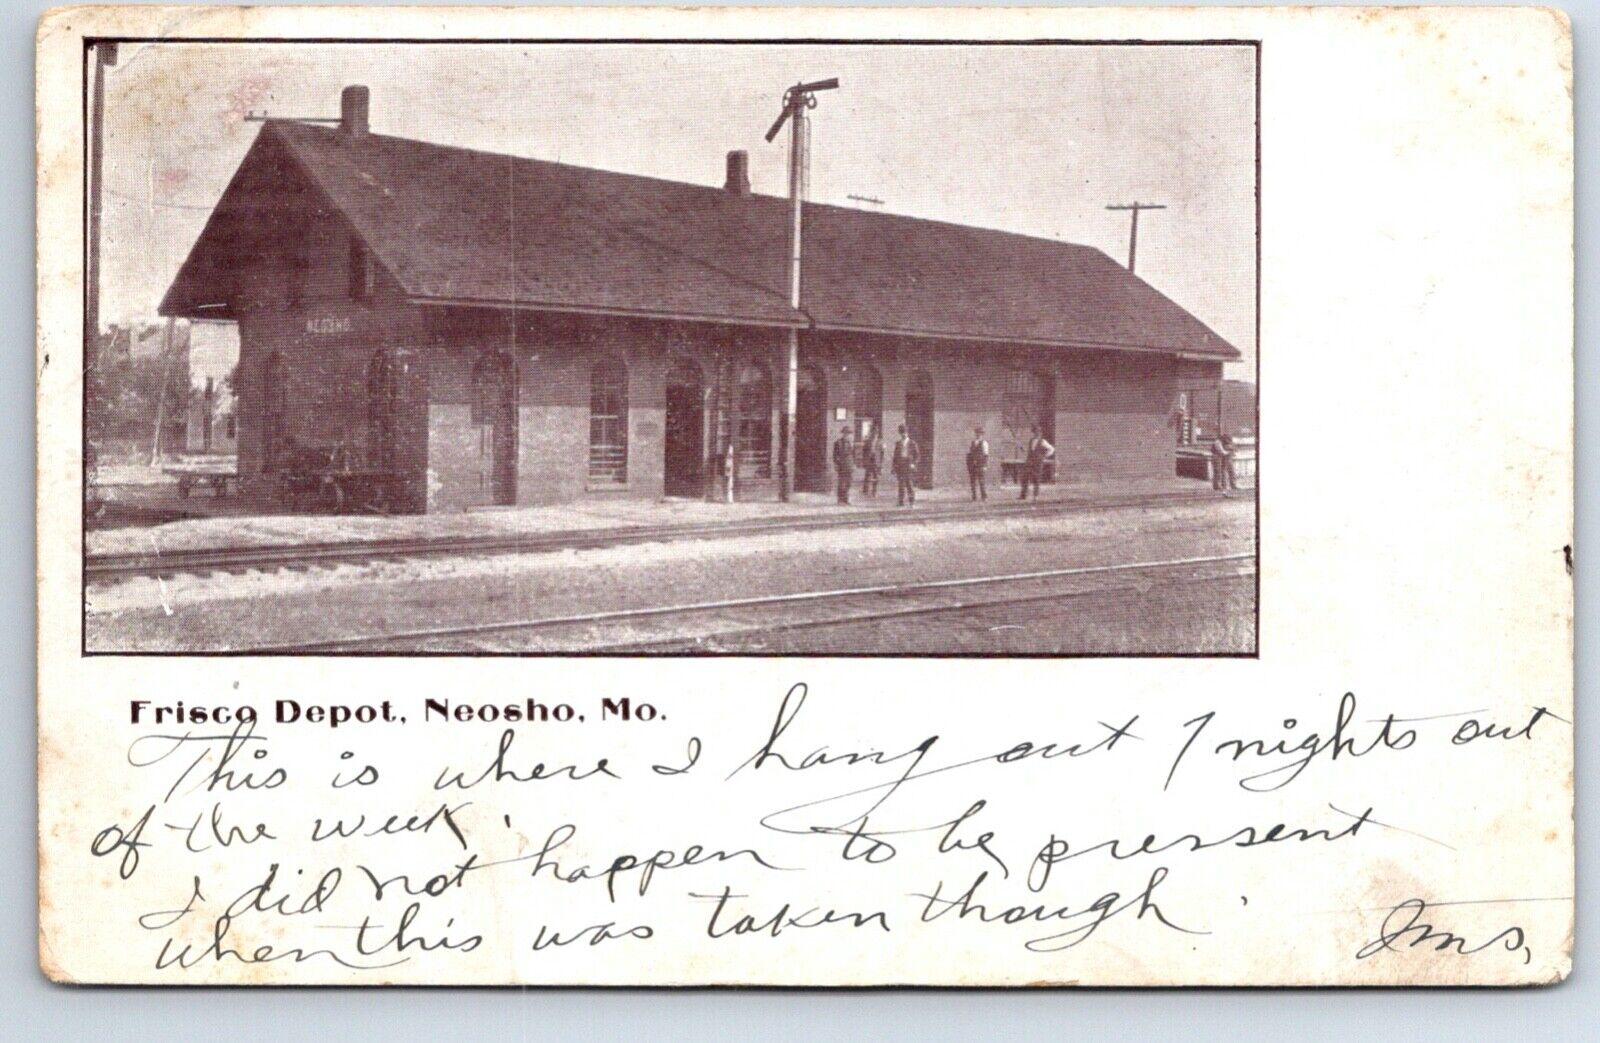 NEOSHO.
Frisco Depot, Neosho, Mo.
This is where I hang out 7 nights out
of the week.
I did not happen to be pressent
when this was taken though.